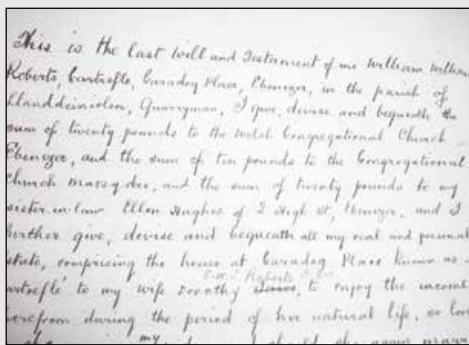 This is the last Will and Testament of me William William
Roberts, Cartrefle, Caradog Place, Ebenezer, in the parish of
Llanddeiniolen, Quarryman, I give, devise and bequeath the
sum of twenty pounds to the Welsh Congregational Church
Ebenezer, and the sum of ten pounds to the Congregational
Church and the sum of twenty pounds to my
sister-in-law Ellen Hughes of 2 High St, Ebenezer, and I
further give, devise and bequeath all my real and personal
estate, comprising the house at Caradog Place known as
Cartrefle' to my wife Dorothy to enjoy the income
therefrom during the period of her natural life, so long
my should she again marry